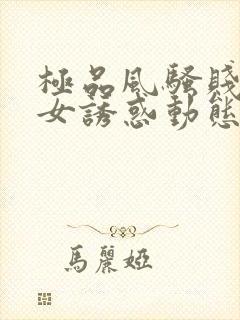 極品風騷賤
女誘惑動態
馬麗婭